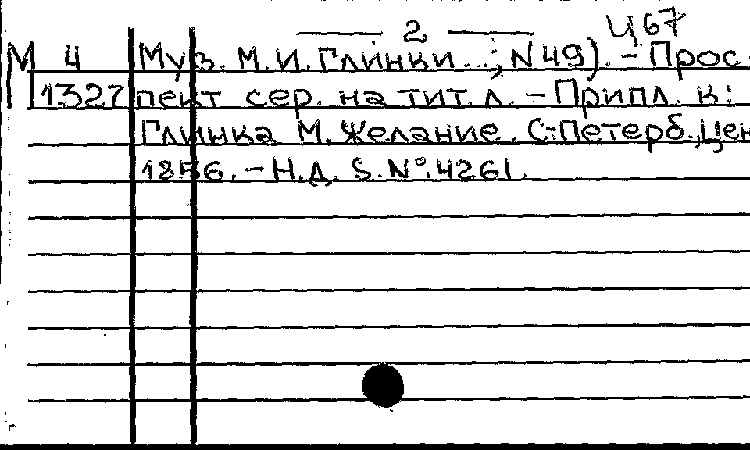 — 2 — Ц67
М 4 Муз. М.И. Глинки...; N 49). - Прос-
1327 пект сер. на тит. л. - Припл. к:
Глинка М. Желание. С.-Петерб., цен
1856. - Н.д. S. № 4261.